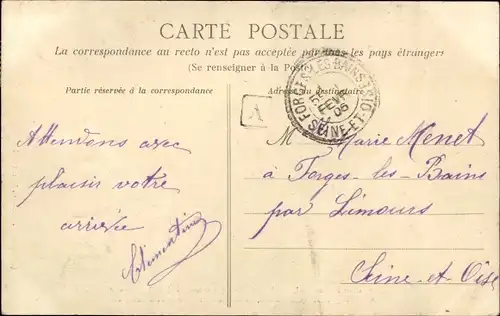 CARTE POSTALE
La correspondance au recto n'est pas acceptée par tous les pays étrangers
(Se renseigner à la Poste)
Partie réservée à la correspondance
Adresse du destinataire
A
FORGES-LES-BAINS
FEVR
06
SEINE-ET-OISE
Attendons avec
plaisir votre
arrivée
Clémentine
M Marie Menet
à Forges-les-Bains
par Limours
Seine-et-Oise